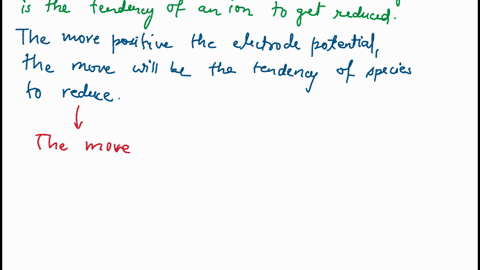 is the tendency of an ion to get reduced.
The more positive the electrode potential,
the more will be the tendency of species
to reduce.
The more